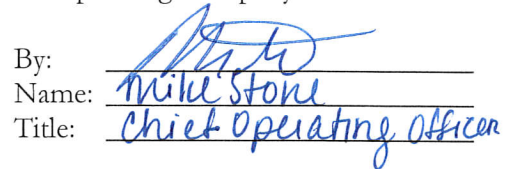 By:
Name: Mike Stone
Title: Chief Operating Officer